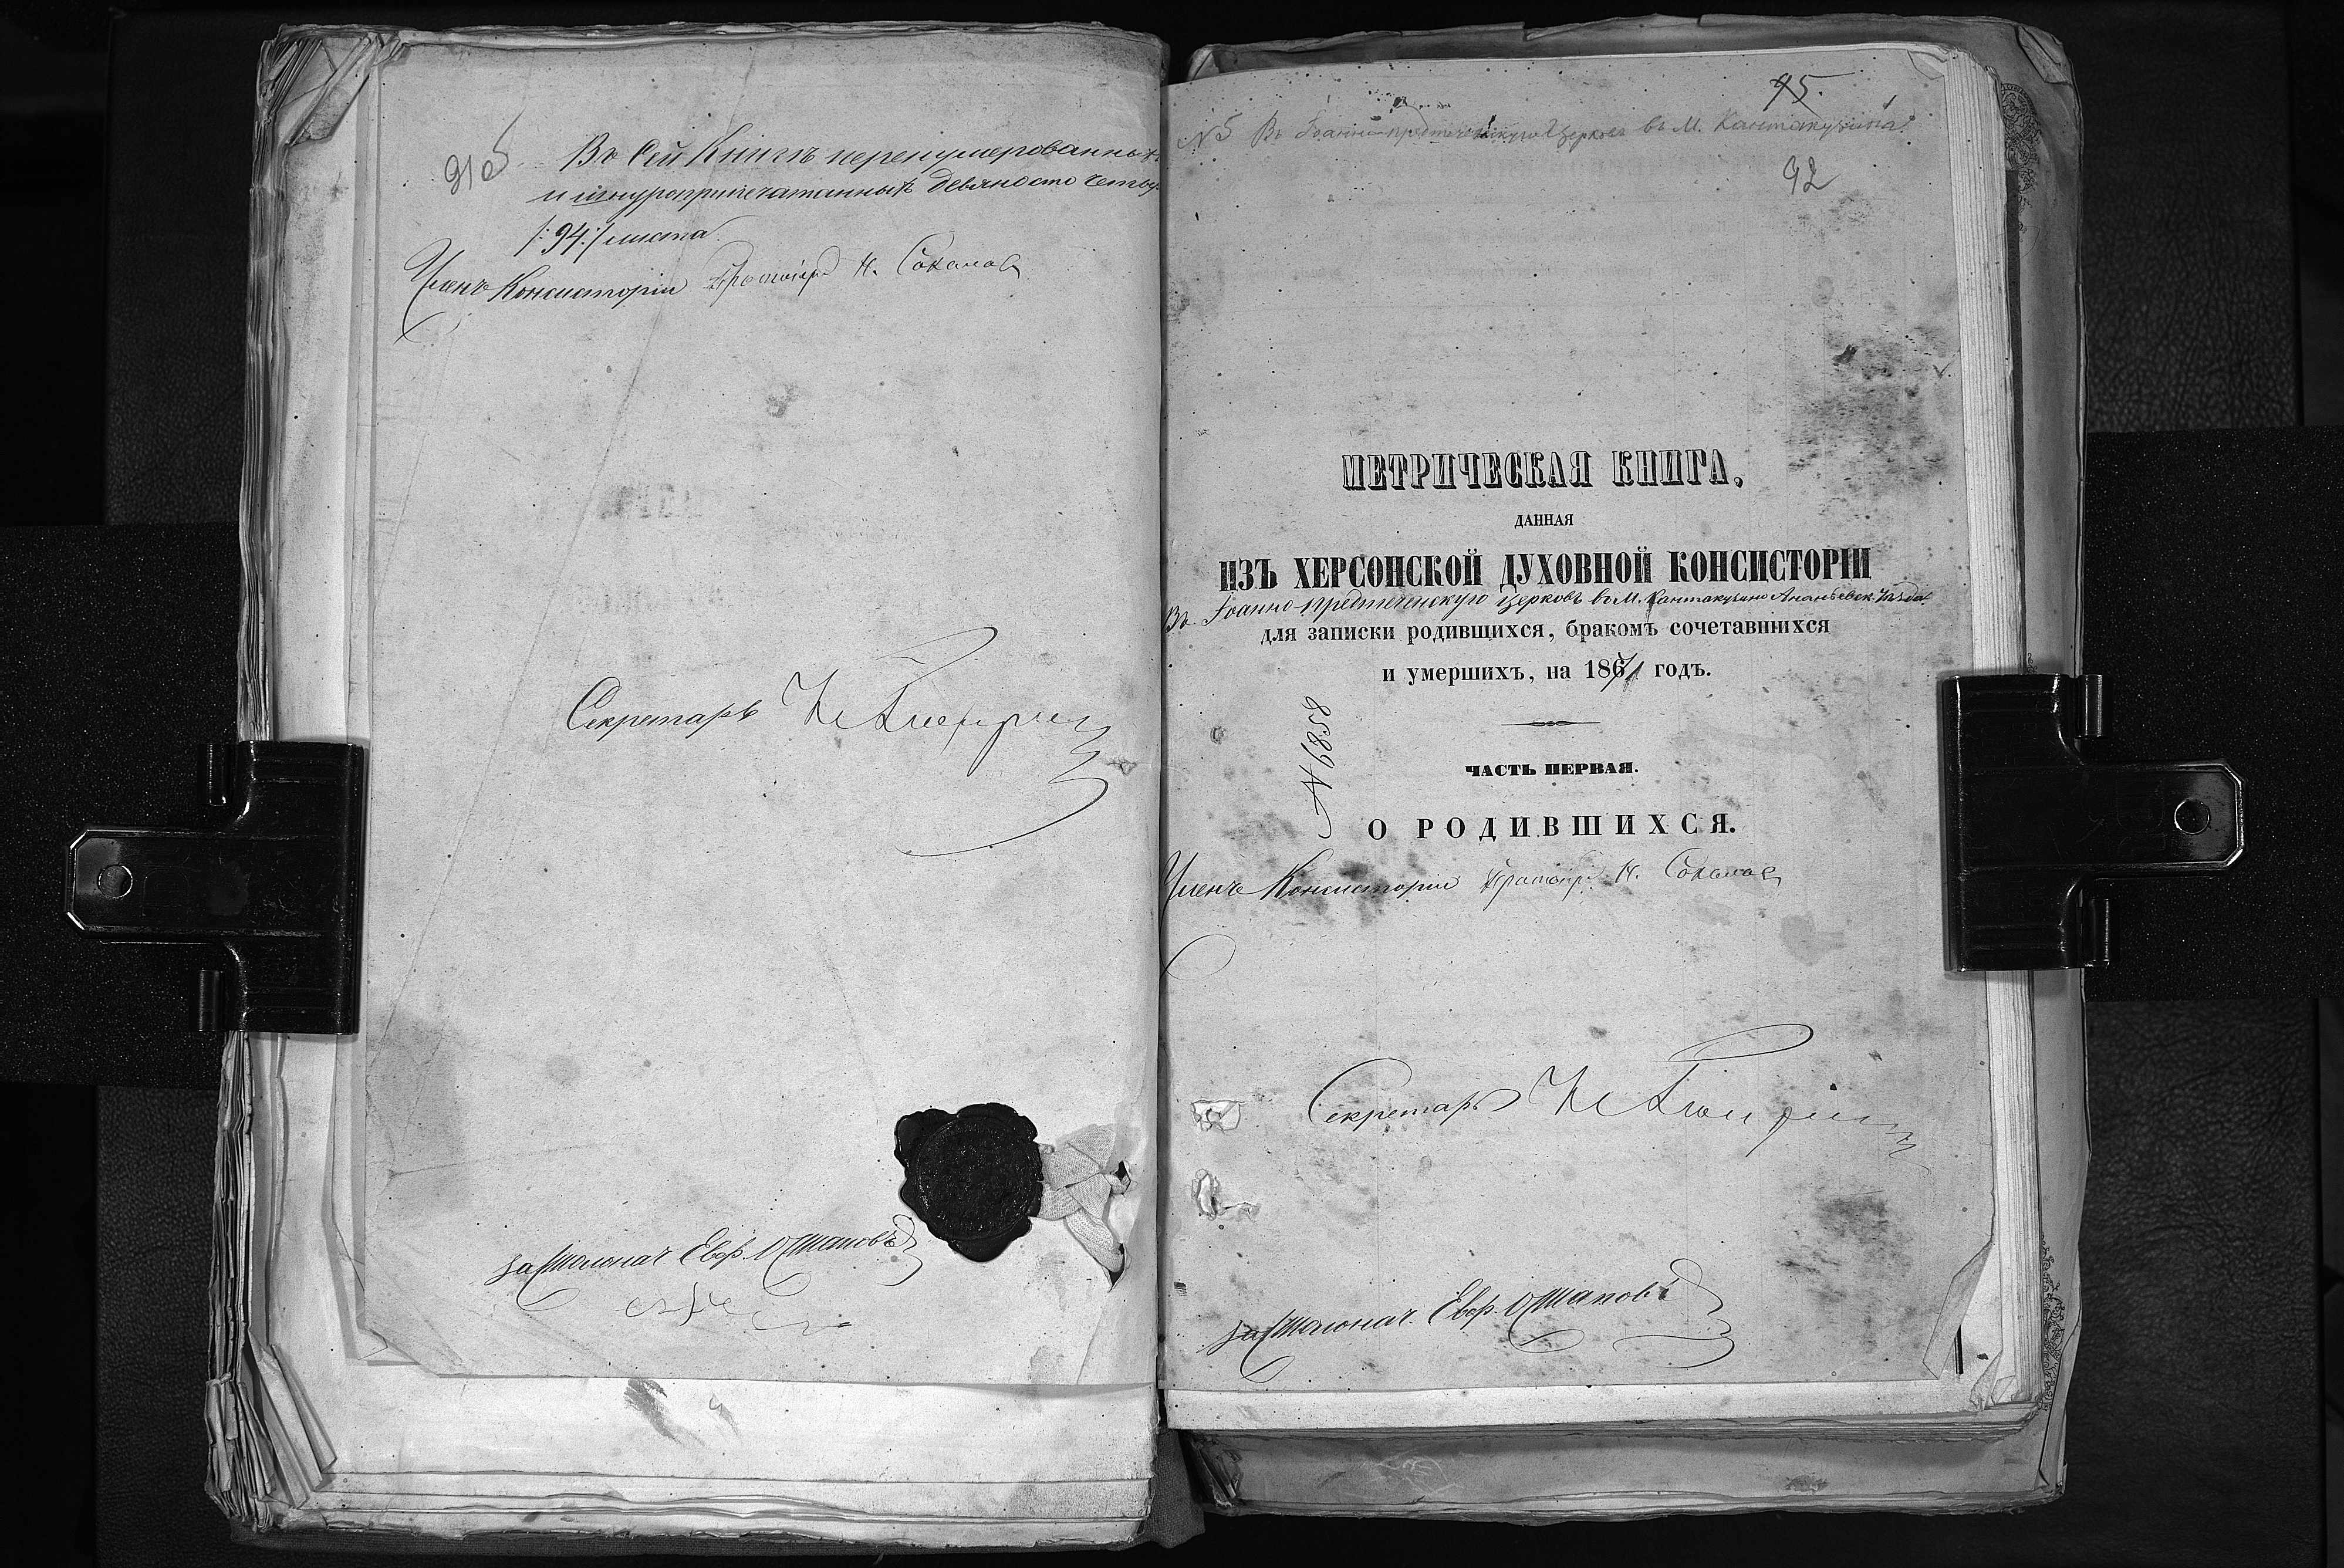 91об
Въ сей Книгѣ перенумерованныхъ
и шнуроприпечатанныхъ девяносто четыр
/:94:/ листа.
Членъ Консисторіи Протоіер. Н. Соколов
Секретарь
застолонач Евф. Осташовъ
95.
№ 5 Въ Іоанно-предтеченскую Церковь въ М. Кантакузина
92
МЕТРИЧЕСКАЯ КНИГА,
ДАННАЯ
ИЗЪ ХЕРСОНСКОЙ ДУХОВНОЙ КОНСИСТОРІИ
Въ Іоанно-предтеченскую церковь въ М. Кантакузино Ананьевск. уѣзда
для записки родившихся, бракомъ сочетавшихся
и умершихъ, на 1871 годъ.
№ 6858
ЧАСТЬ ПЕРВАЯ.
О РОДИВШИХСЯ.
Членъ Консисторіи Протоіер. Н. Соколов
Секретарь
застолонач. Евф. Осташовъ